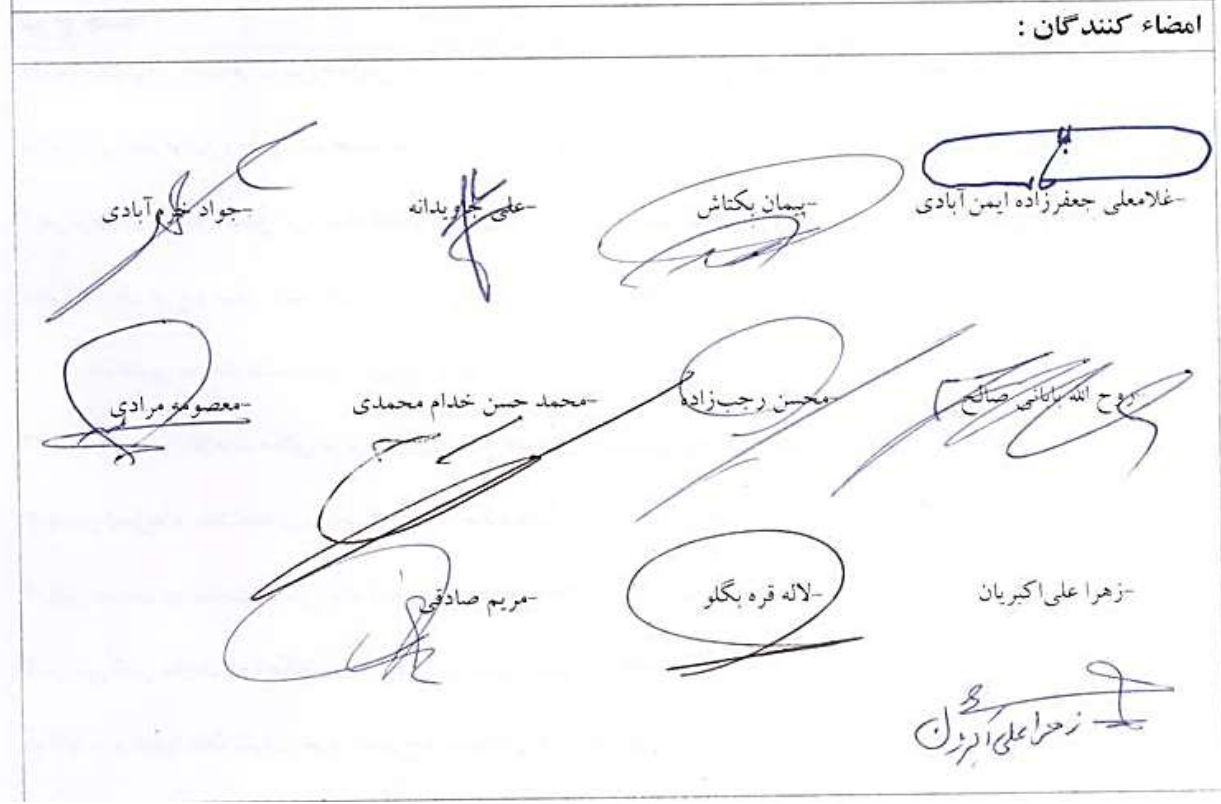 امضاء کنندگان :
-غلامعلی جعفرزاده ایمن آبادی -پیمان بکتاش -علی جاویدانه -جواد خرم آبادی
-روح الله بابائی صالح -محسن رجب‌زاده -محمد حسن خدام محمدی -معصومه مرادی
-زهرا علی‌اکبریان -لاله قره بگلو -مریم صادقی
زهرا علی اکبریان